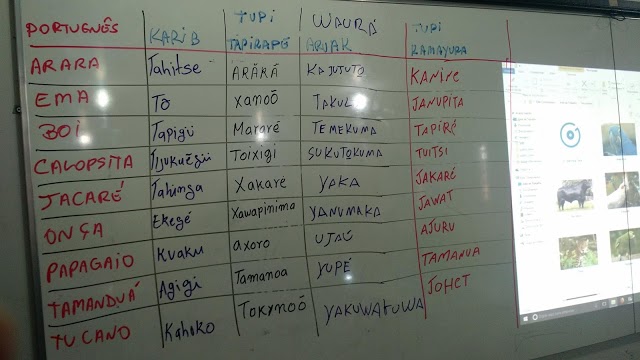 PORTUGUÊS KARIB TUPI TAPIRAPÉ WAURÁ ARUAK TUPI KAMAYURA
ARARA Tahitse ARÁRÁ KAJUTUTO KANINE
EMA Tõ xanoõ TAKULO JANUPITA
BOI Tapigü Mararé TEMEKUMA TAPIRÉ
CALOPSITA Toixigi SUKUTOKUMA TUITSI
JACARÉ Tahinga Xakare YAKA JAKARÉ
ONÇA Ekegé Xawapinima YANUMAKA JAWAT
PAPAGAIO Kuaku axoro UJAÚ AJURU
TAMANDUÁ Agigi Tamanoa YUPÉ TAMANUA
TUCANO Kahoko Tokynoõ YAKUWAKUWA JOHET